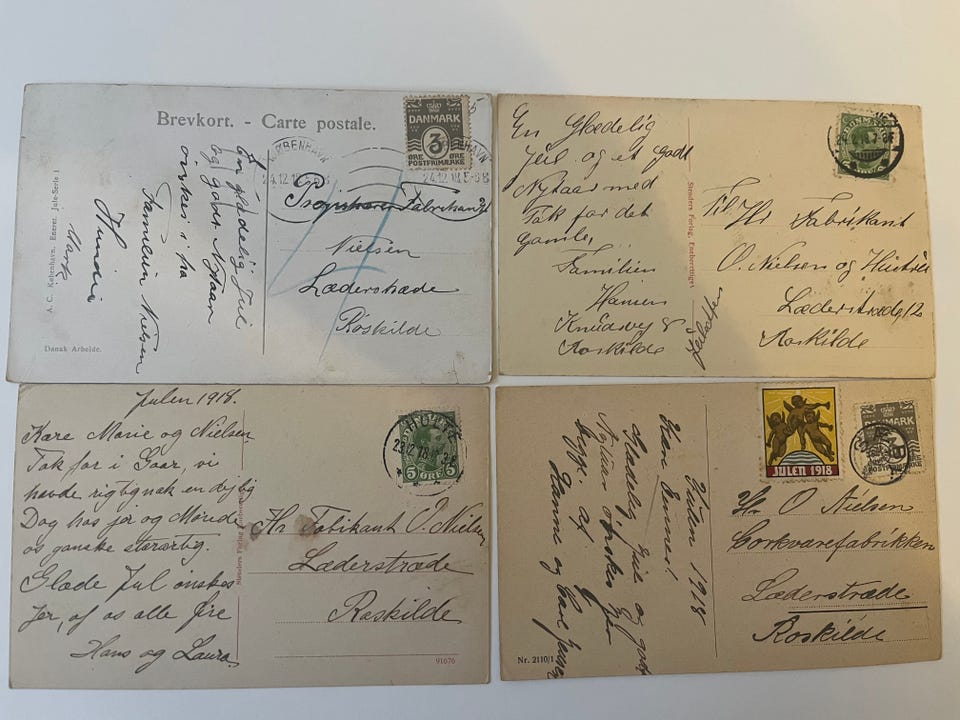 Brevkort. - Carte postale.
DANMARK
3
ØRE ØRE
POSTFRIMÆRKE
KØBENHAVN
24.12.18.5-6 8
24.12.18.5-6 8
En glædelig Jul
og godt Nytaar
ønskes i fra
Familien Nielsen
A. C. København. Eneret. Jule-Serie 1
Dansk Arbejde.
Fabrikant
Nielsen
Læderstræde
Roskilde
En Glædelig
Jul og et godt
Nytaar med
Tak for det
Gamle,
Familien
Hansen
Knudsvej 8
Roskilde
Stenders Forlag. Eneberettiget
DANMARK
Til Hr Fabrikant
O. Nielsen og Hustru
Læderstræde 12
Roskilde
Julen 1918.
Kære Marie og Nielsen
Tak for i Gaar, vi
havde rigtignok en dejlig
Dag hos jer og Morede
os ganske storartig.
Glæde Jul ønskes
Jer, af os alle fire
Hans og Laura.
Stenders Forlag
5 ØRE 5
23.12.18
Hr Fabrikant O. Nielsen
Læderstræde
Roskilde
91676
Julen 1918
Kære Emmes!
Glædelig Jul og godt
Nytaar ønskes Eder
begge af
Hanne og Carl
Nr. 2110/1
JULEN 1918
DANMARK
POSTFRIMÆRKE
Hr O Nielsen
Korkvarefabrikken
Læderstræde
Roskilde